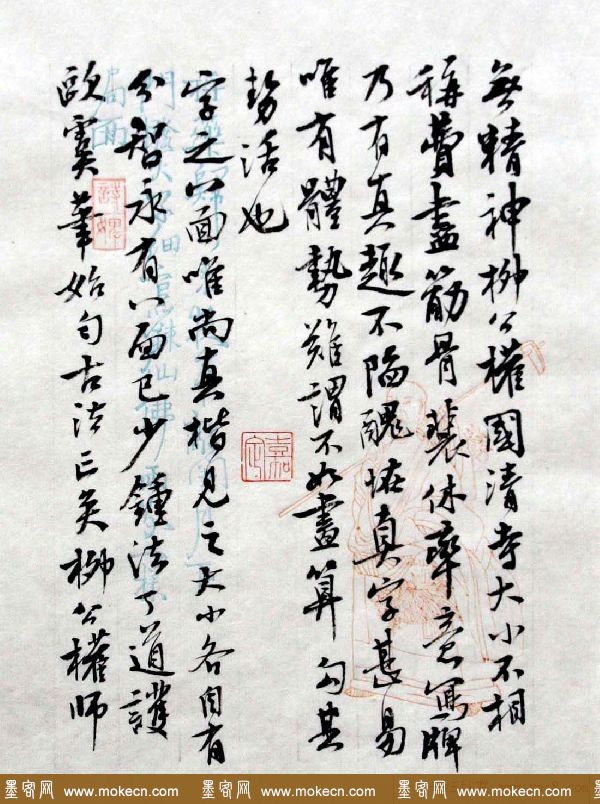 無精神柳公權國清寺大小不相
稱費盡筋骨裴休率意寫牌
乃有真趣不陷醜怪真字甚易
唯有體勢難謂不如畫算勻其
勢活也
字之八面唯尚真楷見之大小各自有
分智永有八面已少鍾法丁道護
歐虞筆始勻古法亡矣柳公權師
嘉定
墨客网 www.mokecn.com 墨客网 www.mokecn.com 墨客网 www.mokecn.com